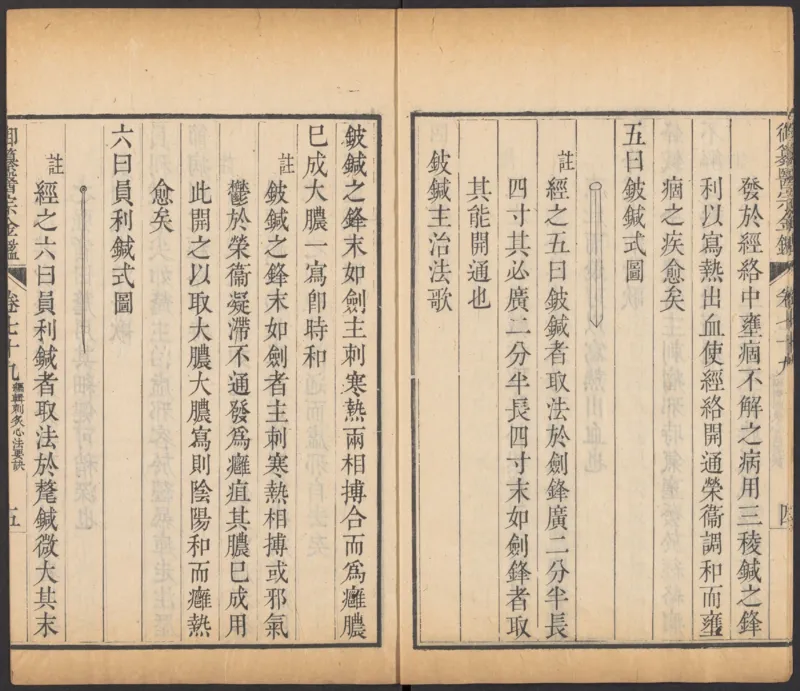 御纂醫宗金鑑
卷七十九
四
發於經絡中壅痼不解之病用三稜鍼之鋒
利以寫熱出血使經絡開通榮衞調和而壅
痼之疾愈矣
五曰鈹鍼式圖
註
經之五曰鈹鍼者取法於劍鋒廣二分半長
四寸其必廣二分半長四寸末如劍鋒者取
其能開通也
鈹鍼主治法歌
鈹鍼之鋒末如劍主刺寒熱兩相搏合而爲癰膿
巳成大膿一寫卽時和
註
鈹鍼之鋒末如劍者主刺寒熱相搏或邪氣
鬱於榮衞凝滯不通發爲癰疽其膿巳成用
此開之以取大膿大膿寫則陰陽和而癰熱
愈矣
六曰員利鍼式圖
註
經之六曰員利鍼者取法於氂鍼微大其末
御纂醫宗金鑑
卷七十九
編輯刺灸心法要訣
五